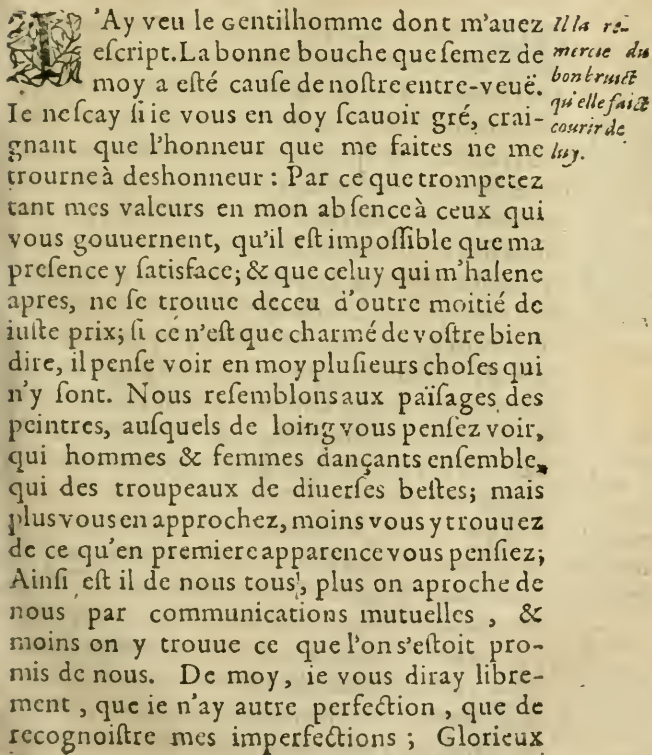 I'Ay veu le Gentilhomme dont m'auez
eſcript. La bonne bouche que ſemez de
moy a eſté cauſe de noſtre entre-veuë.
Ie neſcay ſi ie vous en doy ſcauoir gré, crai-
gnant que l'honneur que me faites ne me
trourne à deshonneur : Par ce que trompetez
tant mes valeurs en mon abſence à ceux qui
vous gouuernent, qu'il eſt impoſſible que ma
preſence y ſatisface; & que celuy qui m'halene
apres, ne ſe trouue deceu d'outre moitié de
iuſte prix; ſi ce n'eſt que charmé de voſtre bien
dire, il penſe voir en moy pluſieurs choſes qui
n'y ſont. Nous reſemblons aux païſages des
peintres, auſquels de loing vous penſez voir,
qui hommes & femmes dançants enſemble,
qui des troupeaux de diuerſes beſtes; mais
plus vous en approchez, moins vous y trouuez
de ce qu'en premiere apparence vous penſiez;
Ainſi eſt il de nous tous, plus on aproche de
nous par communications mutuelles , &
moins on y trouue ce que l'on s'eſtoit pro-
mis de nous. De moy, ie vous diray libre-
ment , que ie n'ay autre perfection , que de
recognoiſtre mes imperfections ; Glorieux
Il la re-
mercie du
bon bruict
qu'elle faict
courir de
luy.